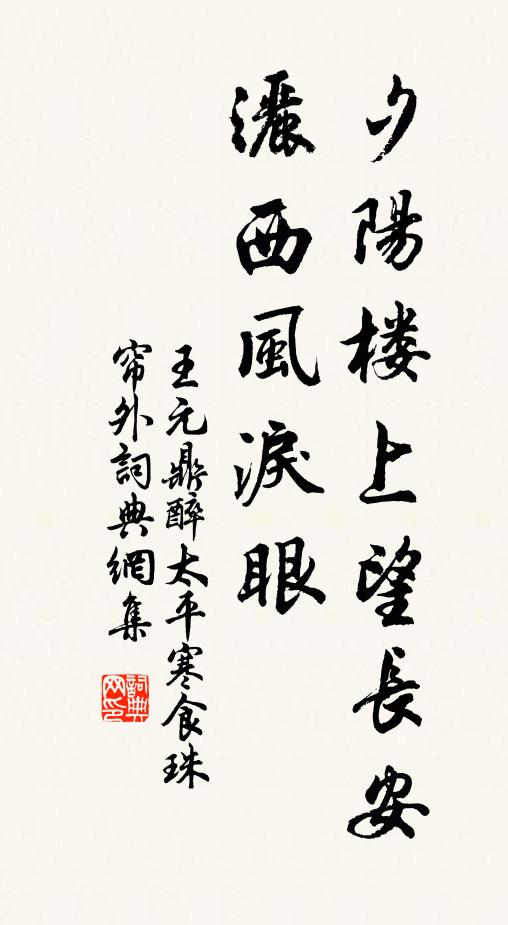 夕陽楼上望長安
灑西風淚眼
王元鼎醉太平寒食珠
帘外詞典網集
詞典
网印